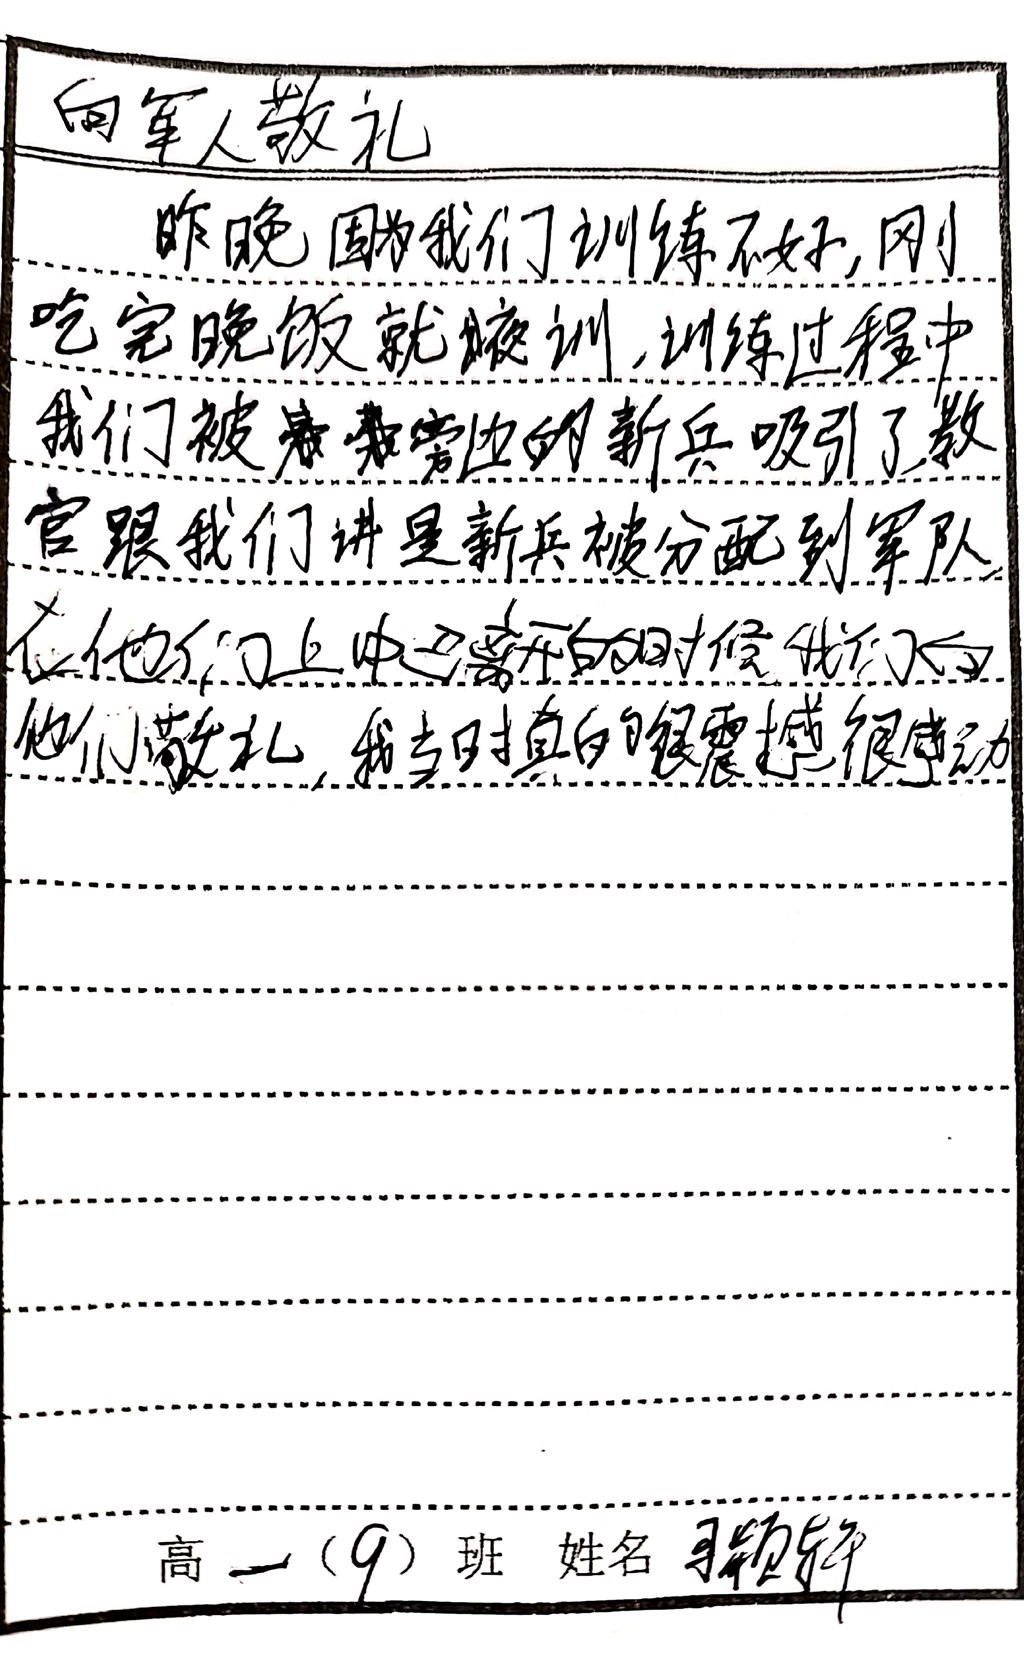 向军人敬礼
昨晚因为我们训练不好,刚
吃完晚饭就夜训,训练过程中
我们被旁边的新兵吸引了,教
官跟我们讲是新兵被分配到军队,
在他们上车离开的时候我们向
他们敬礼,我当时真的很震撼很感动
高一(9)班 姓名